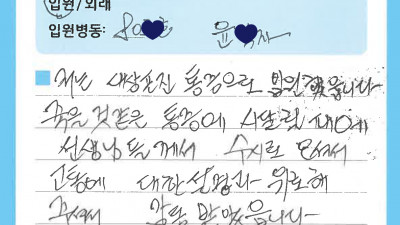 입원/외래
입원병동: 윤
저는 대상포진 통증으로 입원했습니다
죽을 것같은 통증에 시달릴 때에
선생님들께서 수시로 오셔서
고통에 대한 설명과 위로해
주셔서 감동 받았습니다